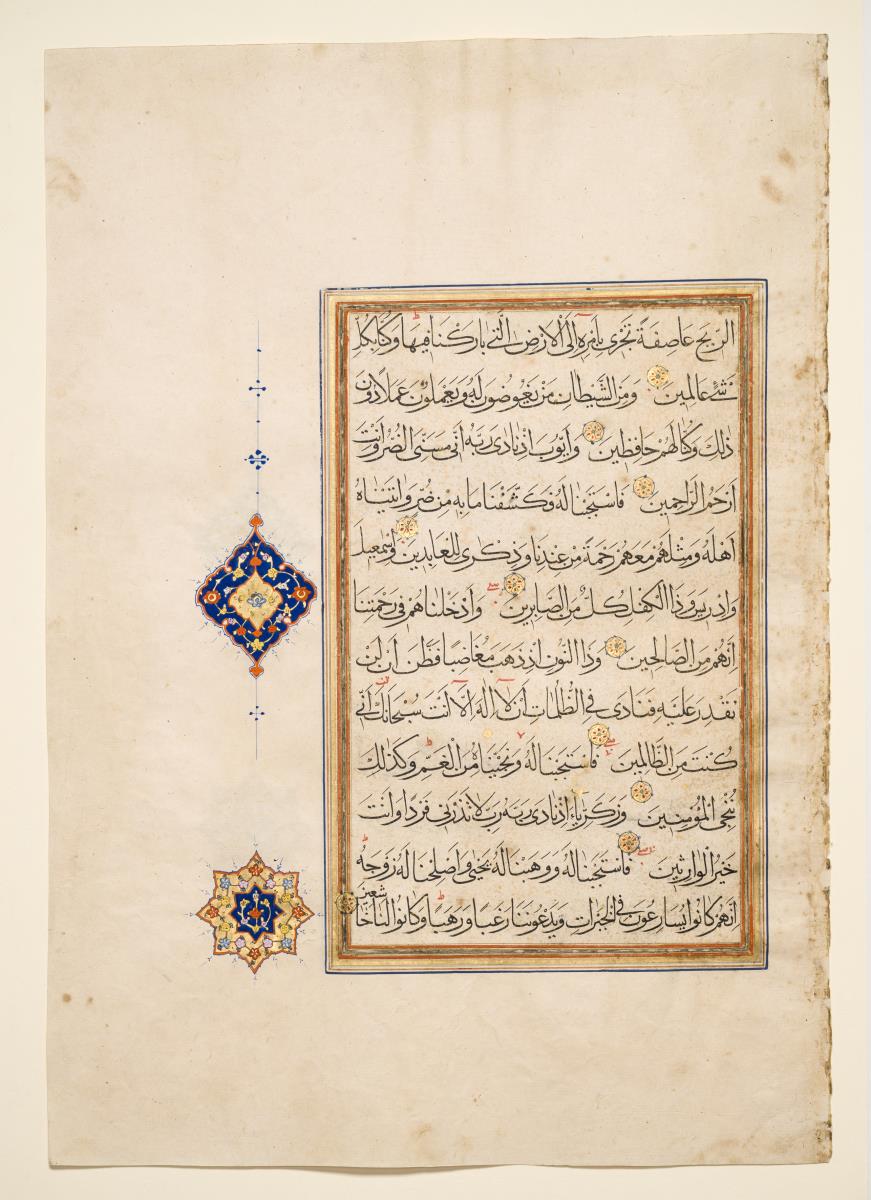 الرِّيحَ عَاصِفَةً تَجْرِي بِأَمْرِهِ إِلَى الْأَرْضِ الَّتِي بَارَكْنَا فِيهَا وَكُنَّا بِكُلِّ
شَيْءٍ عَالِمِينَ وَمِنَ الشَّيَاطِينِ مَنْ يَغُوصُونَ لَهُ وَيَعْمَلُونَ عَمَلًا دُونَ
ذَلِكَ وَكُنَّا لَهُمْ حَافِظِينَ وَأَيُّوبَ إِذْ نَادَى رَبَّهُ أَنِّي مَسَّنِيَ الضُّرُّ وَأَنْتَ
أَرْحَمُ الرَّاحِمِينَ فَاسْتَجَبْنَا لَهُ فَكَشَفْنَا مَا بِهِ مِنْ ضُرٍّ وَآتَيْنَاهُ
أَهْلَهُ وَمِثْلَهُمْ مَعَهُمْ رَحْمَةً مِنْ عِنْدِنَا وَذِكْرَى لِلْعَابِدِينَ وَإِسْمَعِيلَ
وَإِدْرِيسَ وَذَا الْكِفْلِ كُلٌّ مِنَ الصَّابِرِينَ وَأَدْخَلْنَاهُمْ فِي رَحْمَتِنَا
إِنَّهُمْ مِنَ الصَّالِحِينَ وَذَا النُّونِ إِذْ ذَهَبَ مُغَاضِبًا فَظَنَّ أَنْ لَنْ
نَقْدِرَ عَلَيْهِ فَنَادَى فِي الظُّلُمَاتِ أَنْ لَا إِلَهَ إِلَّا أَنْتَ سُبْحَانَكَ إِنِّي
كُنْتُ مِنَ الظَّالِمِينَ فَاسْتَجَبْنَا لَهُ وَنَجَّيْنَاهُ مِنَ الْغَمِّ وَكَذَلِكَ
نُنْجِي الْمُؤْمِنِينَ وَزَكَرِيَّاءَ إِذْ نَادَى رَبَّهُ رَبِّ لَا تَذَرْنِي فَرْدًا وَأَنْتَ
خَيْرُ الْوَارِثِينَ فَاسْتَجَبْنَا لَهُ وَوَهَبْنَا لَهُ يَحْيَى وَأَصْلَحْنَا لَهُ زَوْجَهُ
إِنَّهُمْ كَانُوا يُسَارِعُونَ فِي الْخَيْرَاتِ وَيَدْعُونَنَا رَغَبًا وَرَهَبًا وَكَانُوا لَنَا خَاشِعِينَ